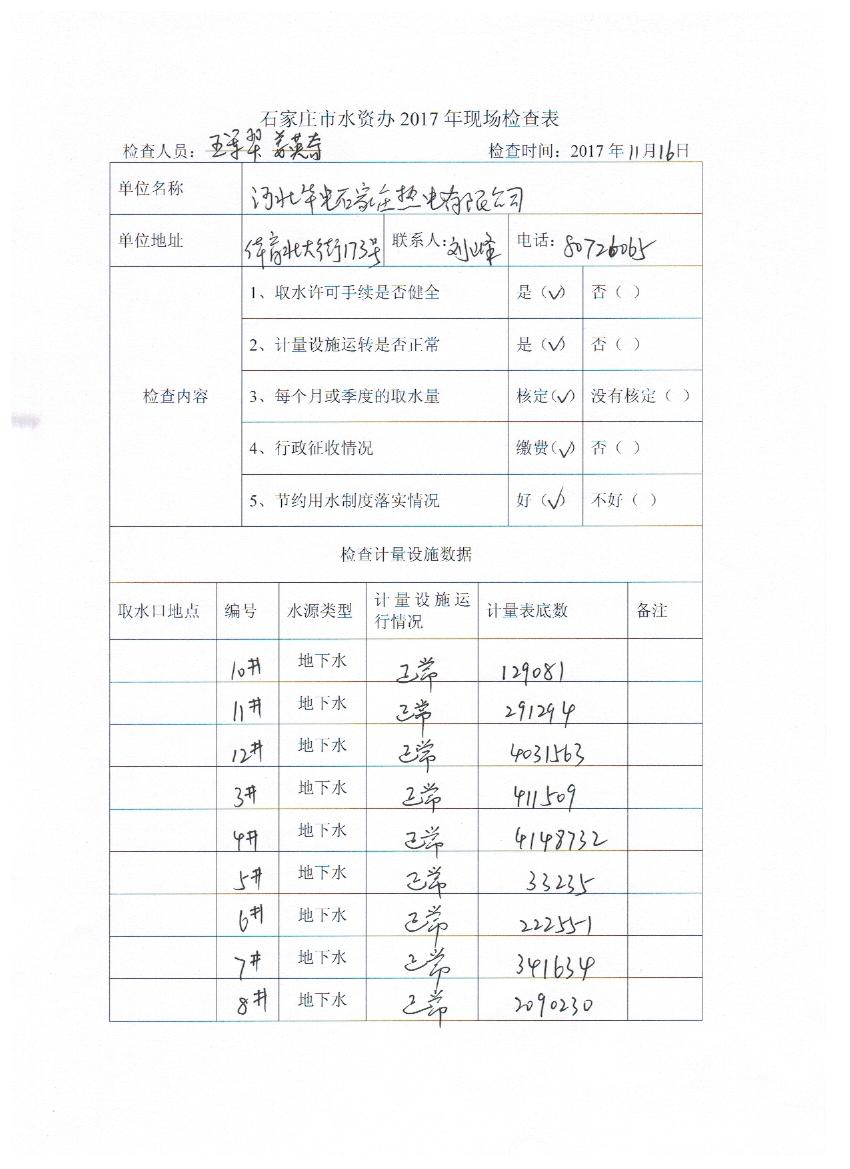 石家庄市水资办 2017 年现场检查表
检查人员： 检查时间：2017 年 11 月 16 日
单位名称 河北华电石家庄热电有限公司
单位地址 体育北大街173号 联系人： 电话：80726065
检查内容
1、取水许可手续是否健全 是（√） 否（ ）
2、计量设施运转是否正常 是（√） 否（ ）
3、每个月或季度的取水量 核定（√） 没有核定（ ）
4、行政征收情况 缴费（√） 否（ ）
5、节约用水制度落实情况 好（√） 不好（ ）
检查计量设施数据
取水口地点 编号 水源类型 计量设施运行情况 计量表底数 备注
10# 地下水 正常 129081
11# 地下水 正常 291294
12# 地下水 正常 4031563
3# 地下水 正常 411509
4# 地下水 正常 4148732
5# 地下水 正常 33235
6# 地下水 正常 222551
7# 地下水 正常 341634
8# 地下水 正常 2090230